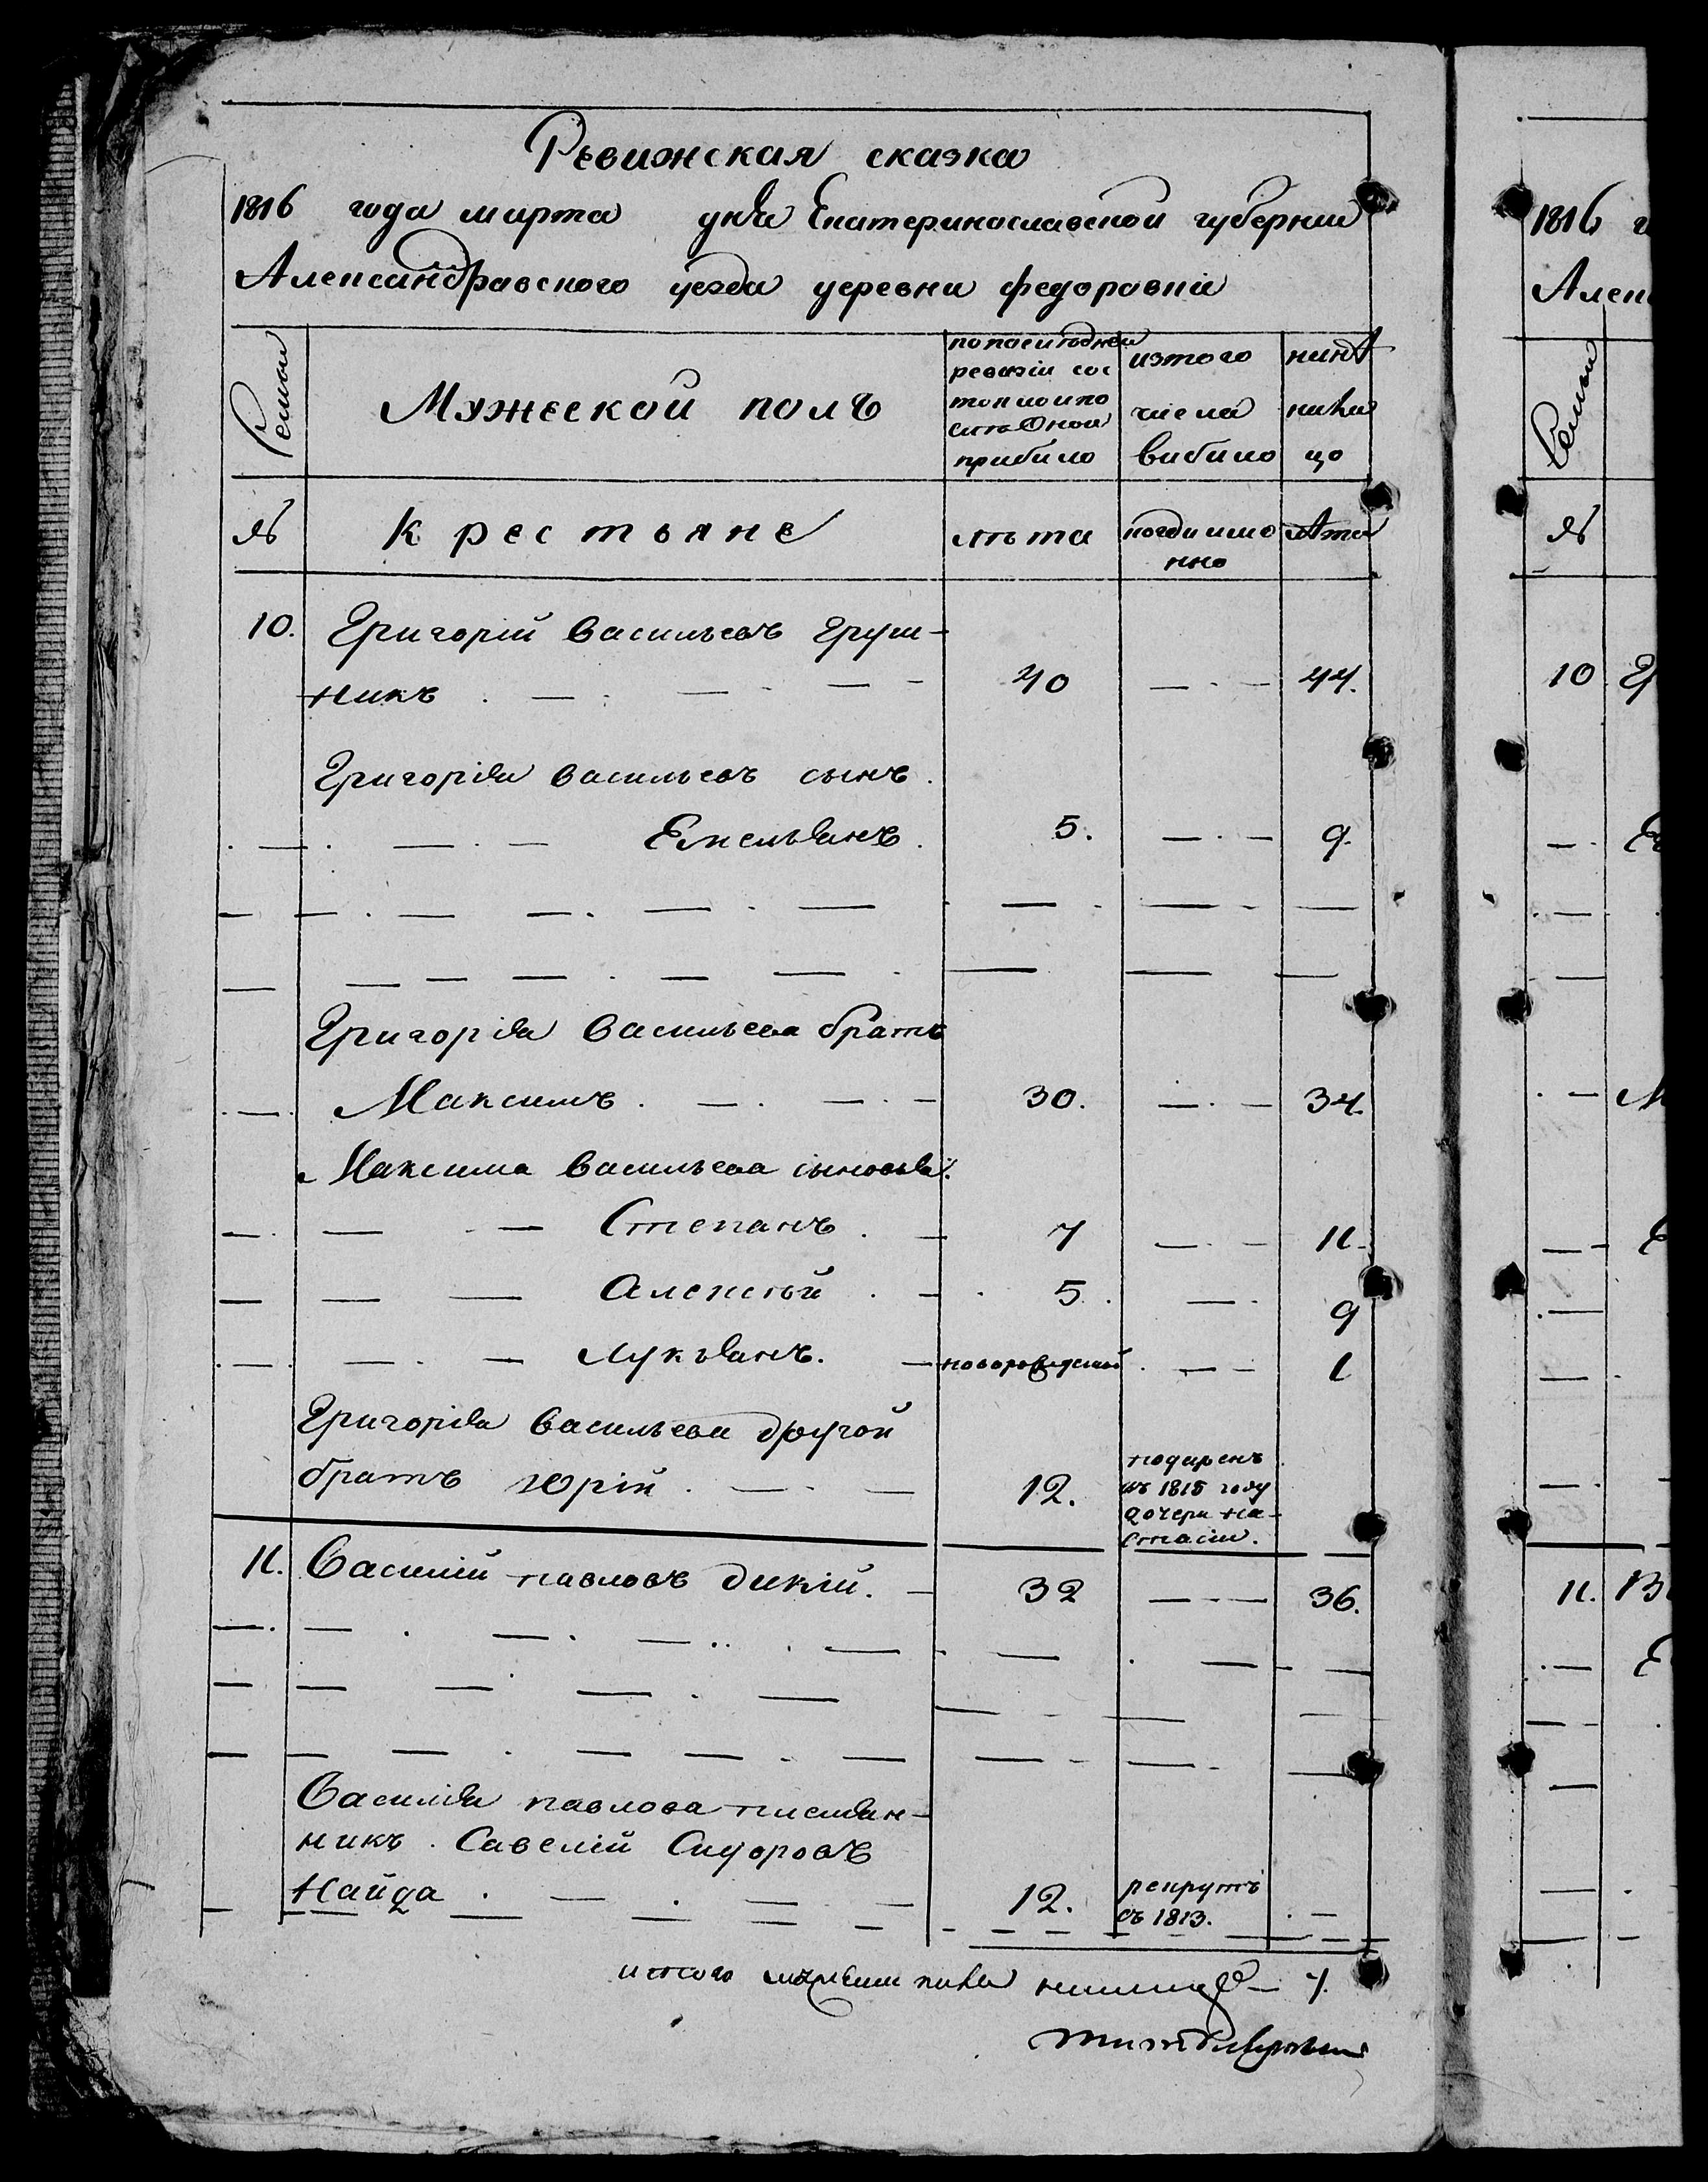 Ревижская сказка
1816 года марта дня Екатеринославской губернии
Александравского уезда деревни федоровки
Семьи
Мужеской полъ
по последней
ревизіи сос
тояло и по
слѣ оной
прибило
изтого
числа
вибило
нинѣ
на ли
цо
№
Крестьяне
лѣта
когда име
нно
лѣта
10. Григорій Васильевъ Груш-
никъ 40 44.
Григорія Васильевъ сынъ
Емельянъ 5. 9.
Григорія Васильева братъ
Максимъ 30. 34.
Максима Васильева сыновья:
Степанъ 7 11.
Алексѣй 5. 9
Лукьянъ. новорожденой 1
Григорія Васильева другой
братъ Юрій 12.
подаренъ
въ 1815 году
дочери На-
стасіи.
11. Василій Павловъ дикій. 32 36.
Василія Павлова племян-
никъ Савелій Сидоровъ
Найда 12.
рекрутъ
въ 1813.
итого налицо 7.
1816
Алек
Семьи
№
10 Гр
Е
М
С
11. В
Е